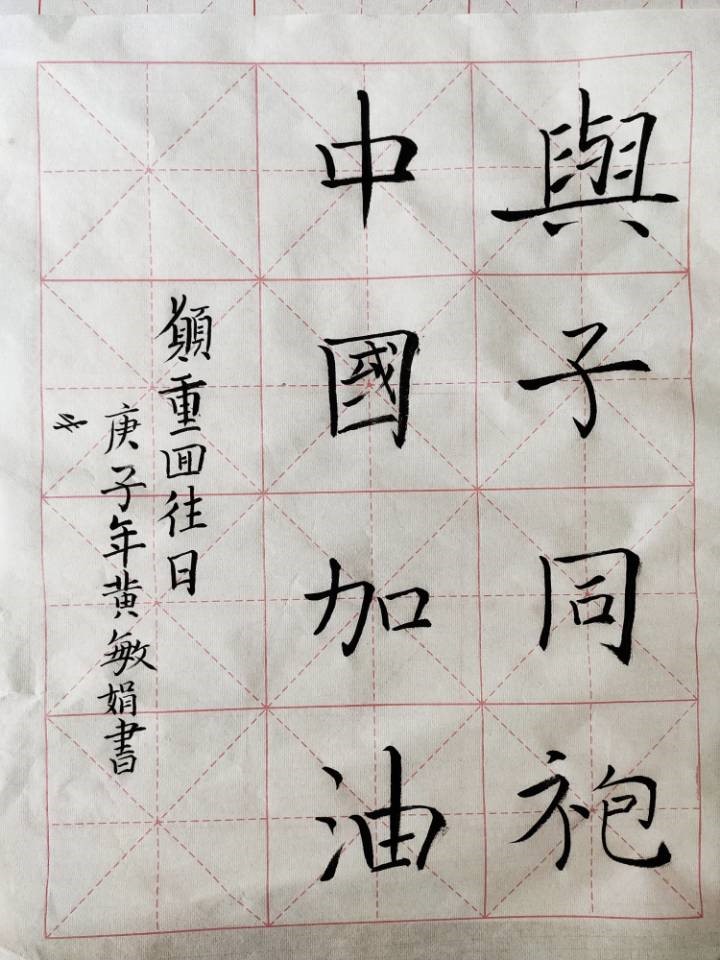 與子同袍
中國加油
願重回往日
庚子年黃敏娟書